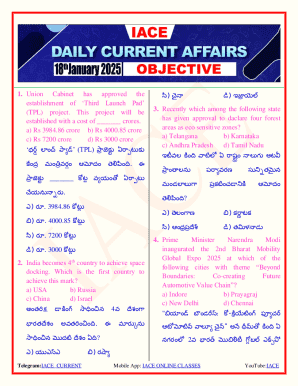 IACE
DAILY CURRENT AFFAIRS
18thJanuary 2025
OBJECTIVE
1. Union Cabinet has approved the
establishment of 'Third Launch Pad'
(TPL) project. This project will be
established with a cost of ______ crores.
a) Rs 3984.86 crore b) Rs 4000.85 crore
c) Rs 7200 crore d) Rs 3000 crore
'థర్డ్ లాంచ్ ప్యాడ్' (TPL) ప్రాజెక్టు ఏర్పాటుకు
కేంద్ర మంత్రివర్గం ఆమోదం తెలిపింది. ఈ
ప్రాజెక్టు ______ కోట్ల వ్యయంతో ఏర్పాటు
చేయనున్నారు.
ఎ) రూ. 3984.86 కోట్లు
బి) రూ. 4000.85 కోట్లు
సి) రూ. 7200 కోట్లు
డి) రూ. 3000 కోట్లు
2. India becomes 4th country to achieve space
docking. Which is the first country to
achieve this mark?
a) USA b) Russia
c) China d) Israel
అంతరిక్ష డాకింగ్ సాధించిన 4వ దేశంగా
భారతదేశం అవతరించింది. ఈ మార్కును
సాధించిన మొదటి దేశం ఏది?
ఎ) యుఎస్ఎ బి) రష్యా
సి) చైనా డి) ఇజ్రాయెల్
3. Recently which among the following state
has given approval to declare four forest
areas as eco sensitive zones?
a) Telangana b) Karnataka
c) Andhra Pradesh d) Tamil Nadu
ఇటీవల కింది వాటిలో ఏ రాష్ట్రం నాలుగు అటవీ
ప్రాంతాలను పర్యావరణ సున్నితమైన
మండలాలుగా ప్రకటించడానికి ఆమోదం
తెలిపింది?
ఎ) తెలంగాణ బి) కర్ణాటక
సి) ఆంధ్రప్రదేశ్ డి) తమిళనాడు
4. Prime Minister Narendra Modi
inaugurated the 2nd Bharat Mobility
Global Expo 2025 at which of the
following cities with theme "Beyond
Boundaries: Co-creating Future
Automotive Value Chain"?
a) Indore b) Prayagraj
c) New Delhi d) Chennai
"బియాండ్ బౌండరీస్: కో-క్రియేటింగ్ ఫ్యూచర్
ఆటోమోటివ్ వాల్యూ చైన్" అనే థీమ్‌తో కింది ఏ
నగరంలో 2వ భారత్ మొబిలిటీ గ్లోబల్ ఎక్స్‌పో
Telegram:IACE_CURRENT Mobile App: IACE ONLINE CLASSES IACE